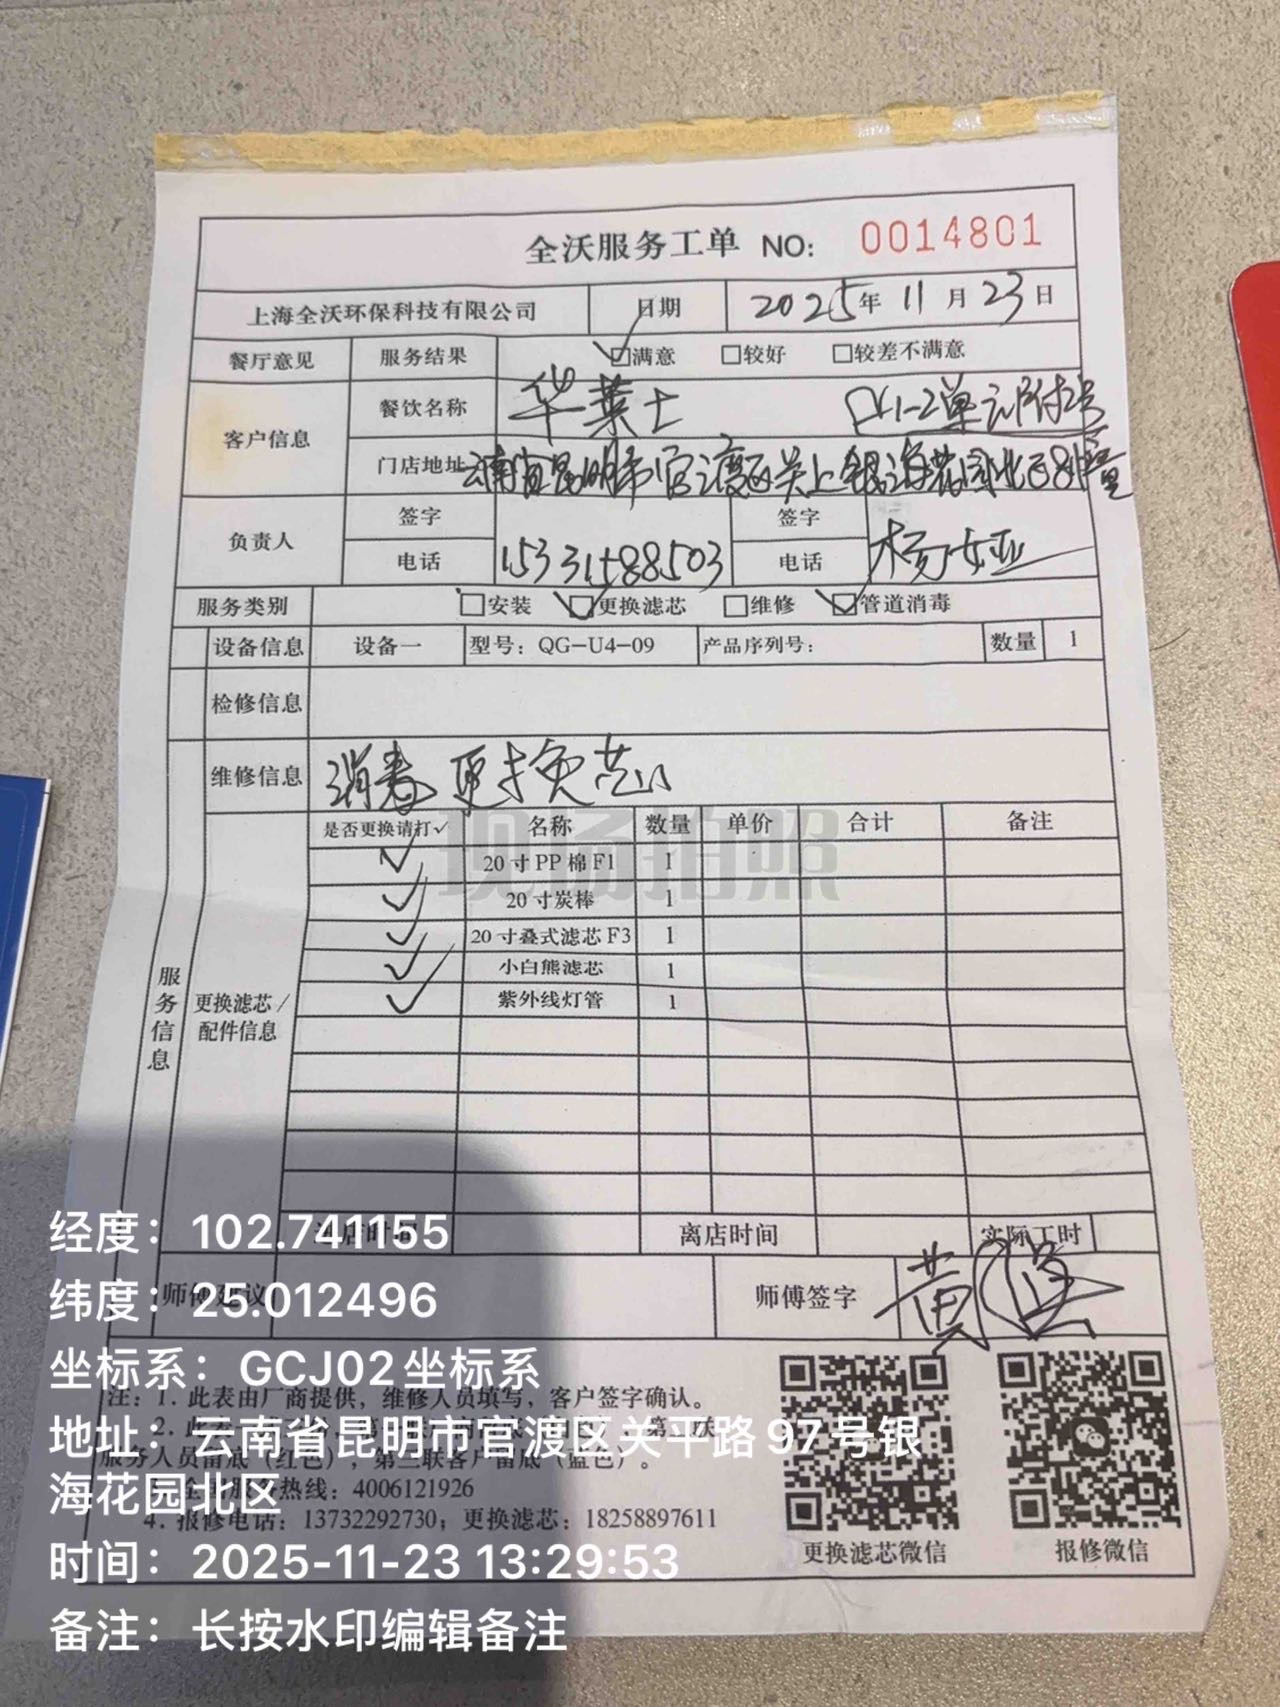 全沃服务工单 NO: 0014801
上海全沃环保科技有限公司 日期 2025年 11月 23日
餐厅意见 服务结果 ☑满意 □较好 □较差不满意
客户信息 餐饮名称 华莱士 1-2单元附2号
门店地址 云南省昆明市官渡区关上银海花园北区8幢
负责人 签字 签字
电话 15331588503 电话 杨女亚
服务类别 □安装 ☑更换滤芯 □维修 ☑管道消毒
设备信息 设备一 型号: QG-U4-09 产品序列号: 数量 1
检修信息
维修信息 消毒 更换芯
服务信息
更换滤芯/
配件信息
是否更换请打✓ 名称 数量 单价 合计 备注
✓ 20寸PP棉F1 1
✓ 20寸炭棒 1
✓ 20寸叠式滤芯F3 1
✓ 小白熊滤芯 1
✓ 紫外线灯管 1
现场拍照
店时间 离店时间 实际工时
师傅建议 师傅签字 黄
注: 1. 此表由厂商提供, 维修人员填写, 客户签字确认。
2. 此表
服务人员留底 (红色), 第三联客户留底 (蓝色)。
服务热线: 4006121926
4. 报修电话: 13732292730; 更换滤芯: 18258897611
更换滤芯微信 报修微信
经度: 102.741155
纬度: 25.012496
坐标系: GCJ02坐标系
地址: 云南省昆明市官渡区关平路97号银
海花园北区
时间: 2025-11-23 13:29:53
备注: 长按水印编辑备注